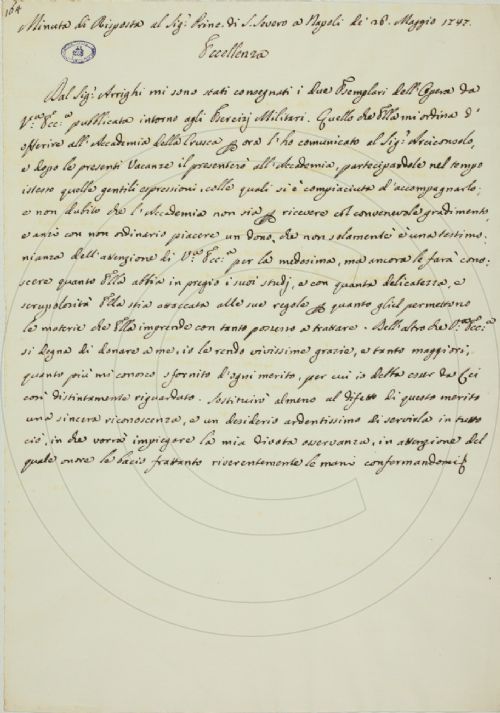 164
Minuta di Risposta al Sig.r Prin.e di S. Severo a Napoli de' 28. Maggio 1747.
Eccellenza
Dal Sig.r Arrighi mi sono stati consegnati i due Esemplari dell'Opera da
V.ra Ecc.a pubblicata intorno agli Esercizj Militari. Quello che Ella mi ordina d'
offerire all'Accademia della Crusca per ora l'ho comunicato al Sig.r Arciconsolo,
e dopo le presenti Vacanze il presenterò all'Accademia, partecipandole nel tempo
istesso quelle gentili espressioni, colle quali si è compiaciuta d'accompagnarlo;
e non dubito che l'Accademia non sia per ricevere col convenevole gradimento
e anzi con non ordinario piacere un dono, che non solamente è una testimo-
nianza dell'attenzione di V.ra Ecc.a per la medesima, ma ancora le farà cono-
scere quanto Ella abbia in pregio i suoi studj, e con quanta delicatezza, e
scrupolosità Ella stia attaccata alle sue regole per quanto gliel permettono
le materie che Ella imprende con tanto possesso a trattare. Dell'altro che V.ra Ecc.a
si degna di donare a me, io le rendo vivissime grazie, e tanto maggiori,
quanto più mi conosco sfornito d'ogni merito, per cui io debba esser da Lei
così distintamente riguardato. Sostituirò almeno al difetto di questo merito
una sincera riconoscenza, e un desiderio ardentissimo di servirla in tutto
ciò, in che vorrà impiegare la mia divota osservanza, in attenzione del
quale onore le bacio frattanto riverentemente le mani confermandomi